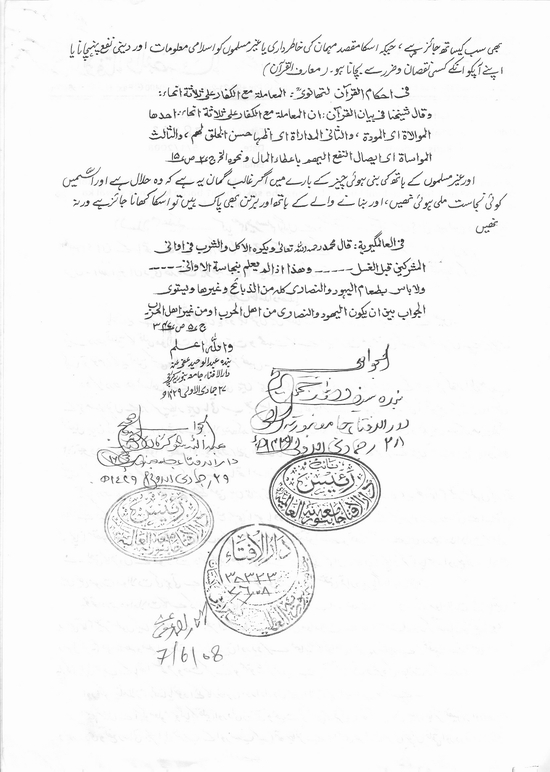 بھی سب کیساتھ جائز ہے، جبکہ اسکا مقصد مہمان کی خاطر داری یا غیر مسلموں کو اسلامی معلومات اور دینی نفع پہنچانا یا
اپنے آپکو انکے کسی نقصان و ضرر سے بچانا ہو۔ (معارف القرآن)
فی احکام القرآن للتھانویؒ: المعاملة مع الکفار علی ثلاثة انحاء:
وقال شیخنا فی بیان القرآن: ان المعاملة مع الکفار علی ثلاثة انحاء: احدها
الموالاة ای المودة، والثانی المداراة ای اظهار حسن الخلق لهم، والثالث
المواساة ای ایصال النفع الیهم باعطاء المال ونحوه الخ ج ص ۱۵
اور غیر مسلموں کے ہاتھ کی بنی ہوئی چیز کے بارے میں اگر غالب گمان یہ ہے کہ وہ حلال ہے اور اسمیں
کوئی نجاست ملی ہوئی نھیں، اور بنانے والے کے ہاتھ اور برتن بھی پاک ہیں تو اسکا کھانا جائز ہے ورنہ
نھیں
فی العالمگیریة: قال محمد رحمه الله تعالی ویکره الاکل والشرب فی اوانی
المشرکین قبل الغسل ------ وهذا اذا لم یعلم بنجاسة الاوانی -----
ولا باس بطعام الیهود والنصاری کله من الذبائح وغیرها ویستوی
الجواب بین ان یکون الیهود والنصاری من اهل الحرب او من غیر اهل الحرب
ج ۵ ص ۳۴۷
واللہ اعلم
بندہ عبد الوحید عفی عنہ
دار الافتاء جامعہ بنوریہ کراچی
۲۷ جمادی الاولی ۱۴۲۹ھ
الجواب صحیح
دار الافتاء جامعہ بنوریہ
۲۸ جمادی الاولی ۱۴۲۹ھ
الجواب صحیح
دار الافتاء جامعہ بنوریہ
۲۹ جمادی الاولی ۱۴۲۹ھ
نائب رئیس
دار الافتاء جامعہ بنوریہ العالمیہ
رئیس
دار الافتاء جامعہ بنوریہ العالمیہ
دار الافتاء
۳۵۳۲۳
7/6/08